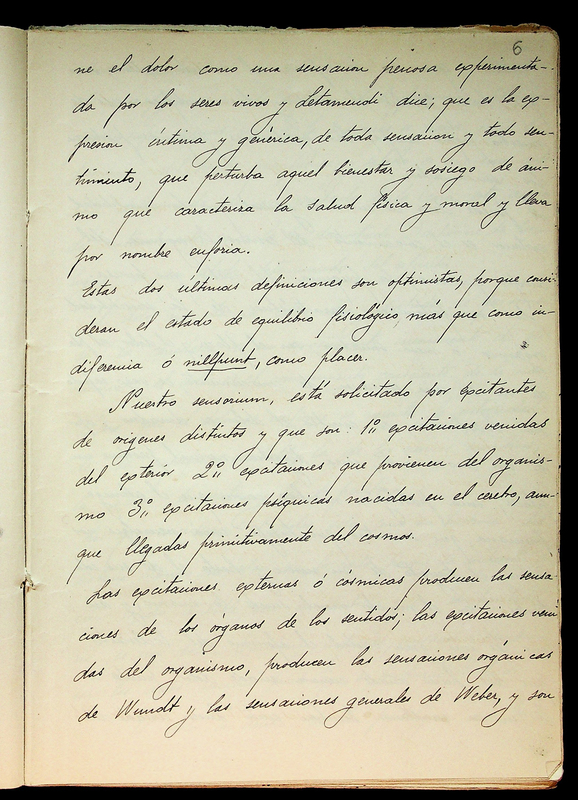 6
ne el dolor como una sensacion penosa experimenta-
da por los seres vivos y Letamendi dice; que es la ex-
presion íntima y genérica, de toda sensacion y todo sen-
timiento, que perturba aquel bienestar y sosiego de áni-
mo que caracteriza la salud física y moral y lleva
por nombre euforia.
Estas dos últimas definiciones son optimistas, porque consi-
deran el estado de equilibrio fisiológico, más que como in-
diferencia ó nillpunt, como placer.
Nuestro sensorium, está solicitado por excitantes
de origenes distintos y que son: 1º excitaciones venidas
del exterior 2º excitaciones que provienen del organis-
mo 3º excitaciones psíquicas nacidas en el cerebro, aun-
que llegadas primitivamente del cosmos.
Las excitaciones externas ó cósmicas producen las sensa
ciones de los órganos de los sentidos; las excitaciones veni
das del organismo, producen las sensaciones orgánicas
de Wundt y las sensaciones generales de Weber, y son